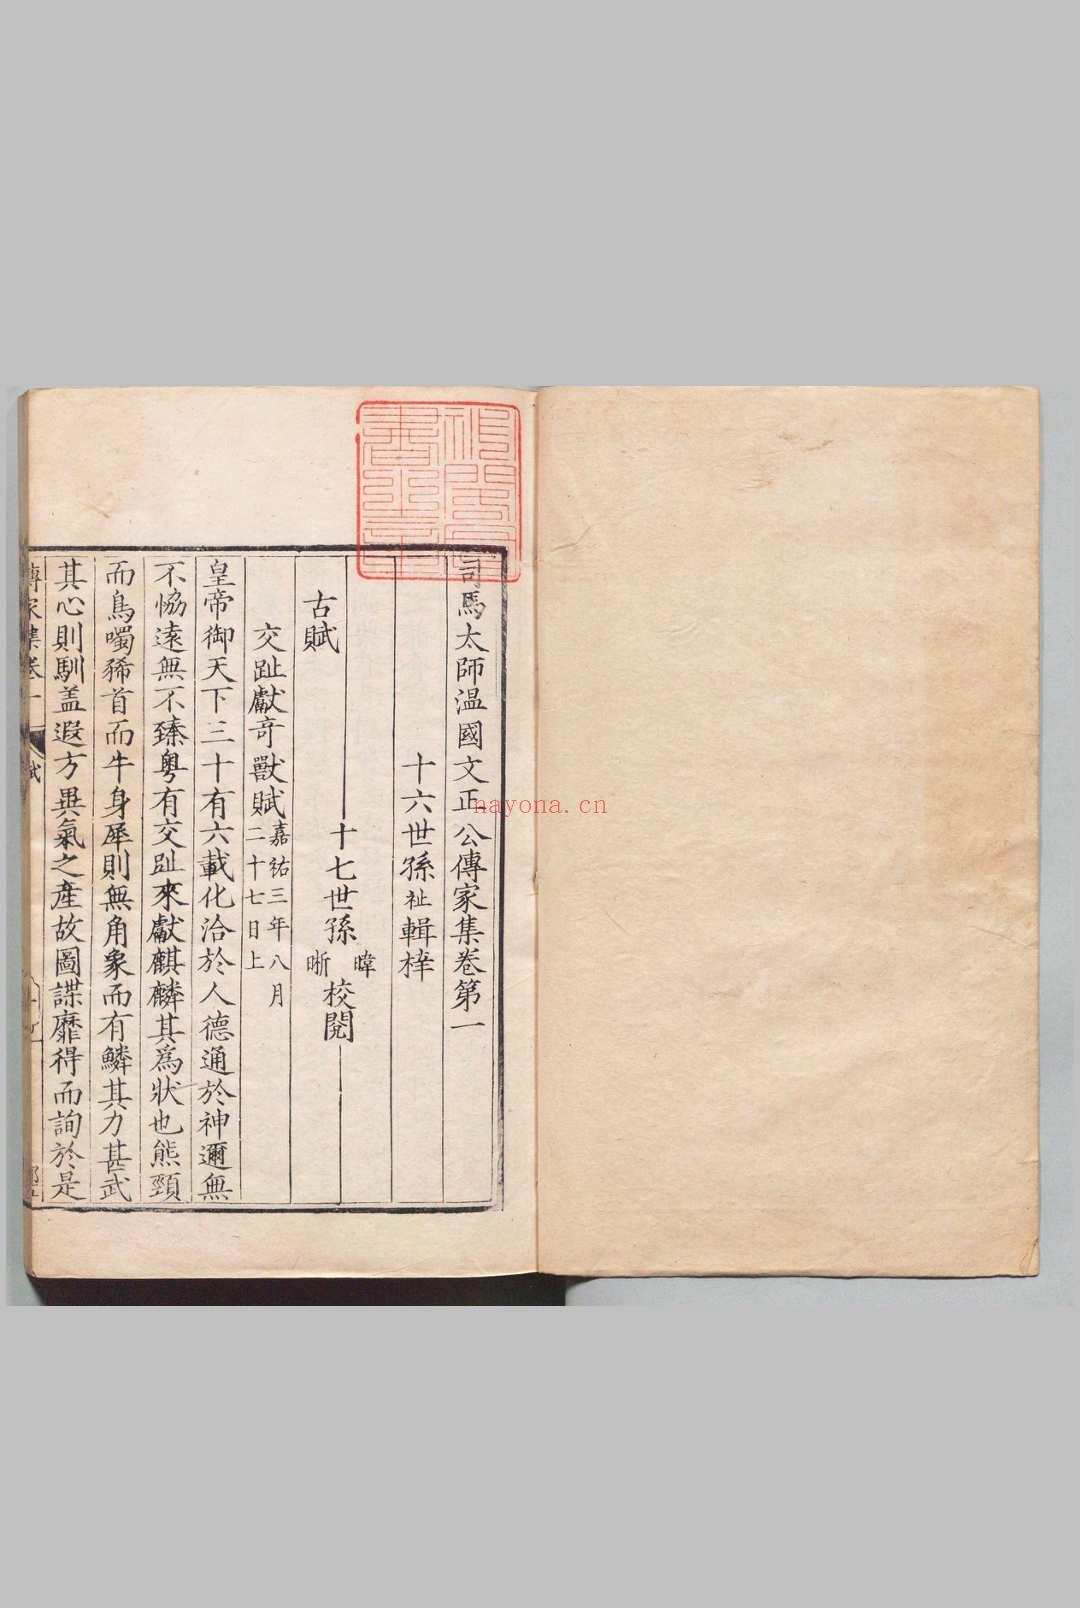 司馬太師温國文正公傳家集卷第一
十六世孫祉輯梓
十七世孫暐晣校閱
古賦
交趾獻奇獸賦嘉祐三年八月二十七日上
皇帝御天下三十有六載化洽於人德通於神邇無
不恊遠無不臻粤有交趾來獻麒麟其為狀也熊頸
而鳥噣豨首而牛身犀則無角象而有鱗其力甚武
其心則馴盖遐方異氣之産故圖諜靡得而詢於是
傳家集卷一
賦
nayona.cn